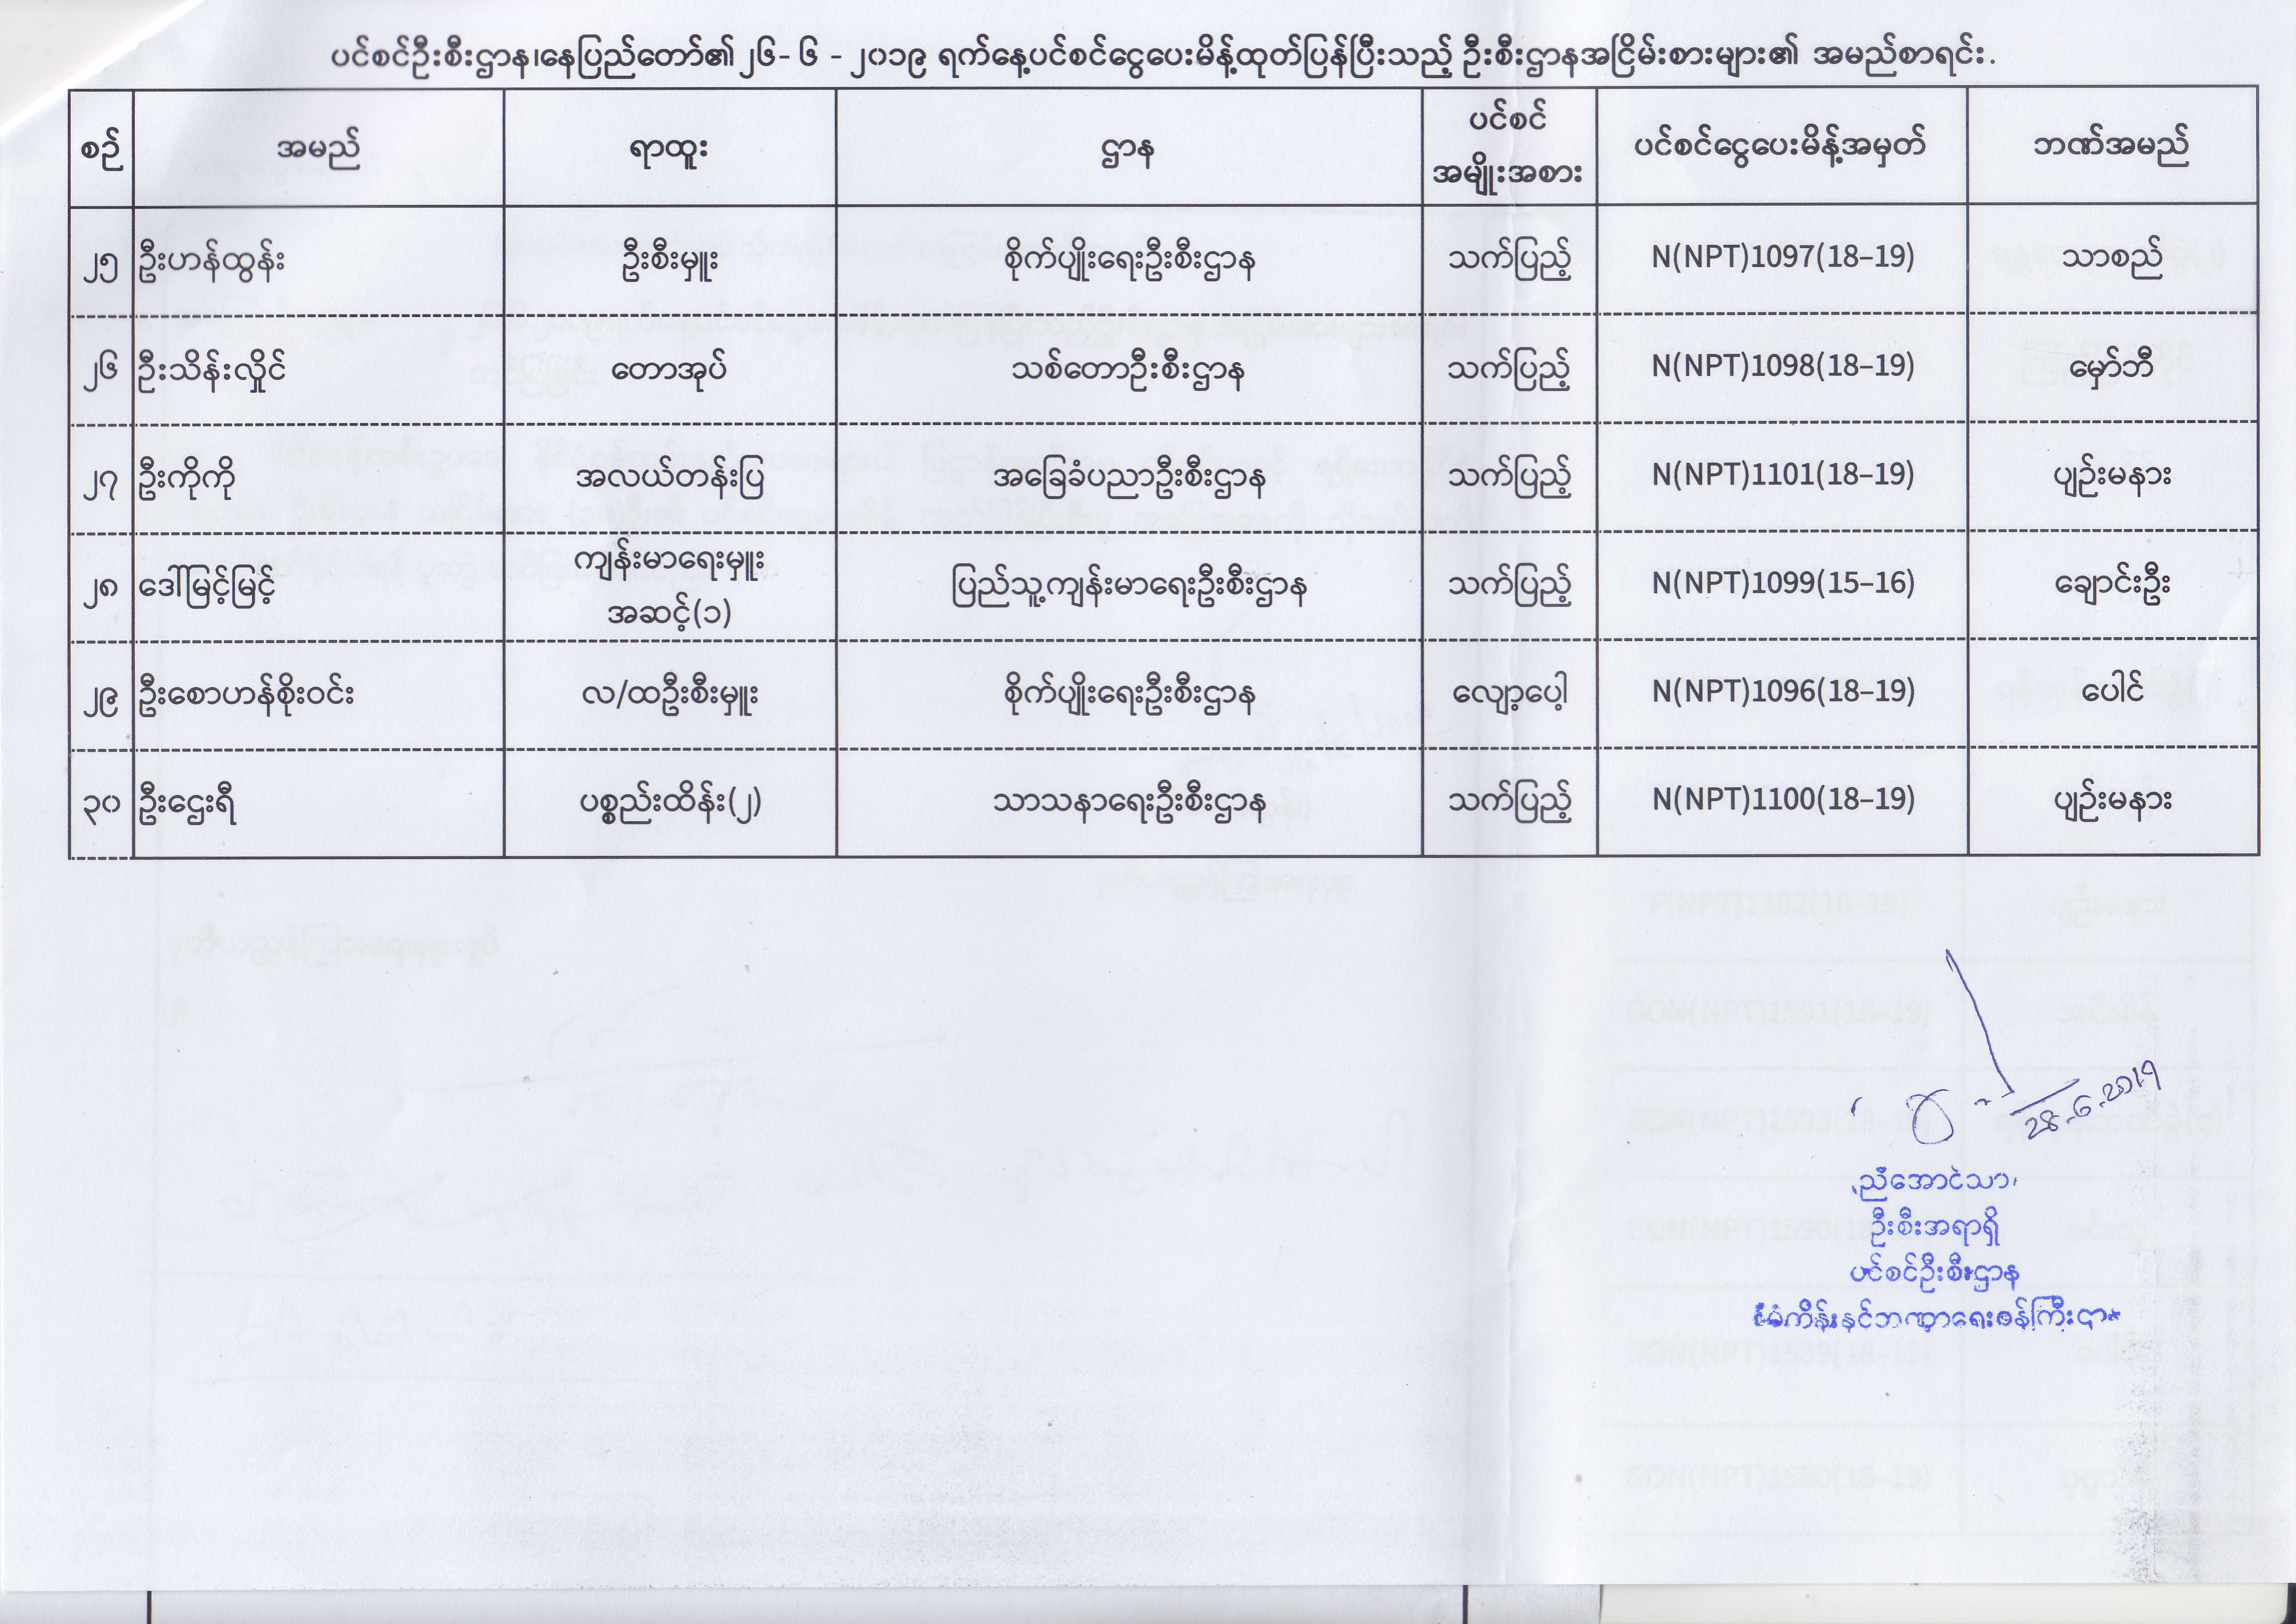 ပင်စင်ဦးစီးဌာန၊နေပြည်တော်၏၂၆-၆ - ၂၀၁၉ ရက်နေ့ပင်စင်ငွေပေးမိန့်ထုတ်ပြန်ပြီးသည့် ဦးစီးဌာနအငြိမ်းစားများ၏ အမည်စာရင်း.
စဉ် အမည် ရာထူး ဌာန ပင်စင် အမျိုးအစား ပင်စင်ငွေပေးမိန့်အမှတ် ဘဏ်အမည်
၂၅ ဦးဟန်ထွန်း ဦးစီးမှူး စိုက်ပျိုးရေးဦးစီးဌာန သက်ပြည့် N(NPT)1097(18–19) သာစည်
၂၆ ဦးသိန်းလှိုင် တောအုပ် သစ်တောဦးစီးဌာန သက်ပြည့် N(NPT)1098(18–19) မှော်ဘီ
၂၇ ဦးကိုကို အလယ်တန်းပြ အခြေခံပညာဦးစီးဌာန သက်ပြည့် N(NPT)1101(18–19) ပျဉ်းမနား
၂၈ ဒေါ်မြင့်မြင့် ကျန်းမာရေးမှူး အဆင့်(၁) ပြည်သူ့ကျန်းမာရေးဦးစီးဌာန သက်ပြည့် N(NPT)1099(15–16) ချောင်းဦး
၂၉ ဦးစောဟန်စိုးဝင်း လ/ထဦးစီးမှူး စိုက်ပျိုးရေးဦးစီးဌာန လျော့ပေါ့ N(NPT)1096(18–19) ပေါင်
၃၀ ဦးဌေးရီ ပစ္စည်းထိန်း(၂) သာသနာရေးဦးစီးဌာန သက်ပြည့် N(NPT)1100(18–19) ပျဉ်းမနား
28.6.2019
ဦးစီးအရာရှိ
ပင်စင်ဦးစီးဌာန